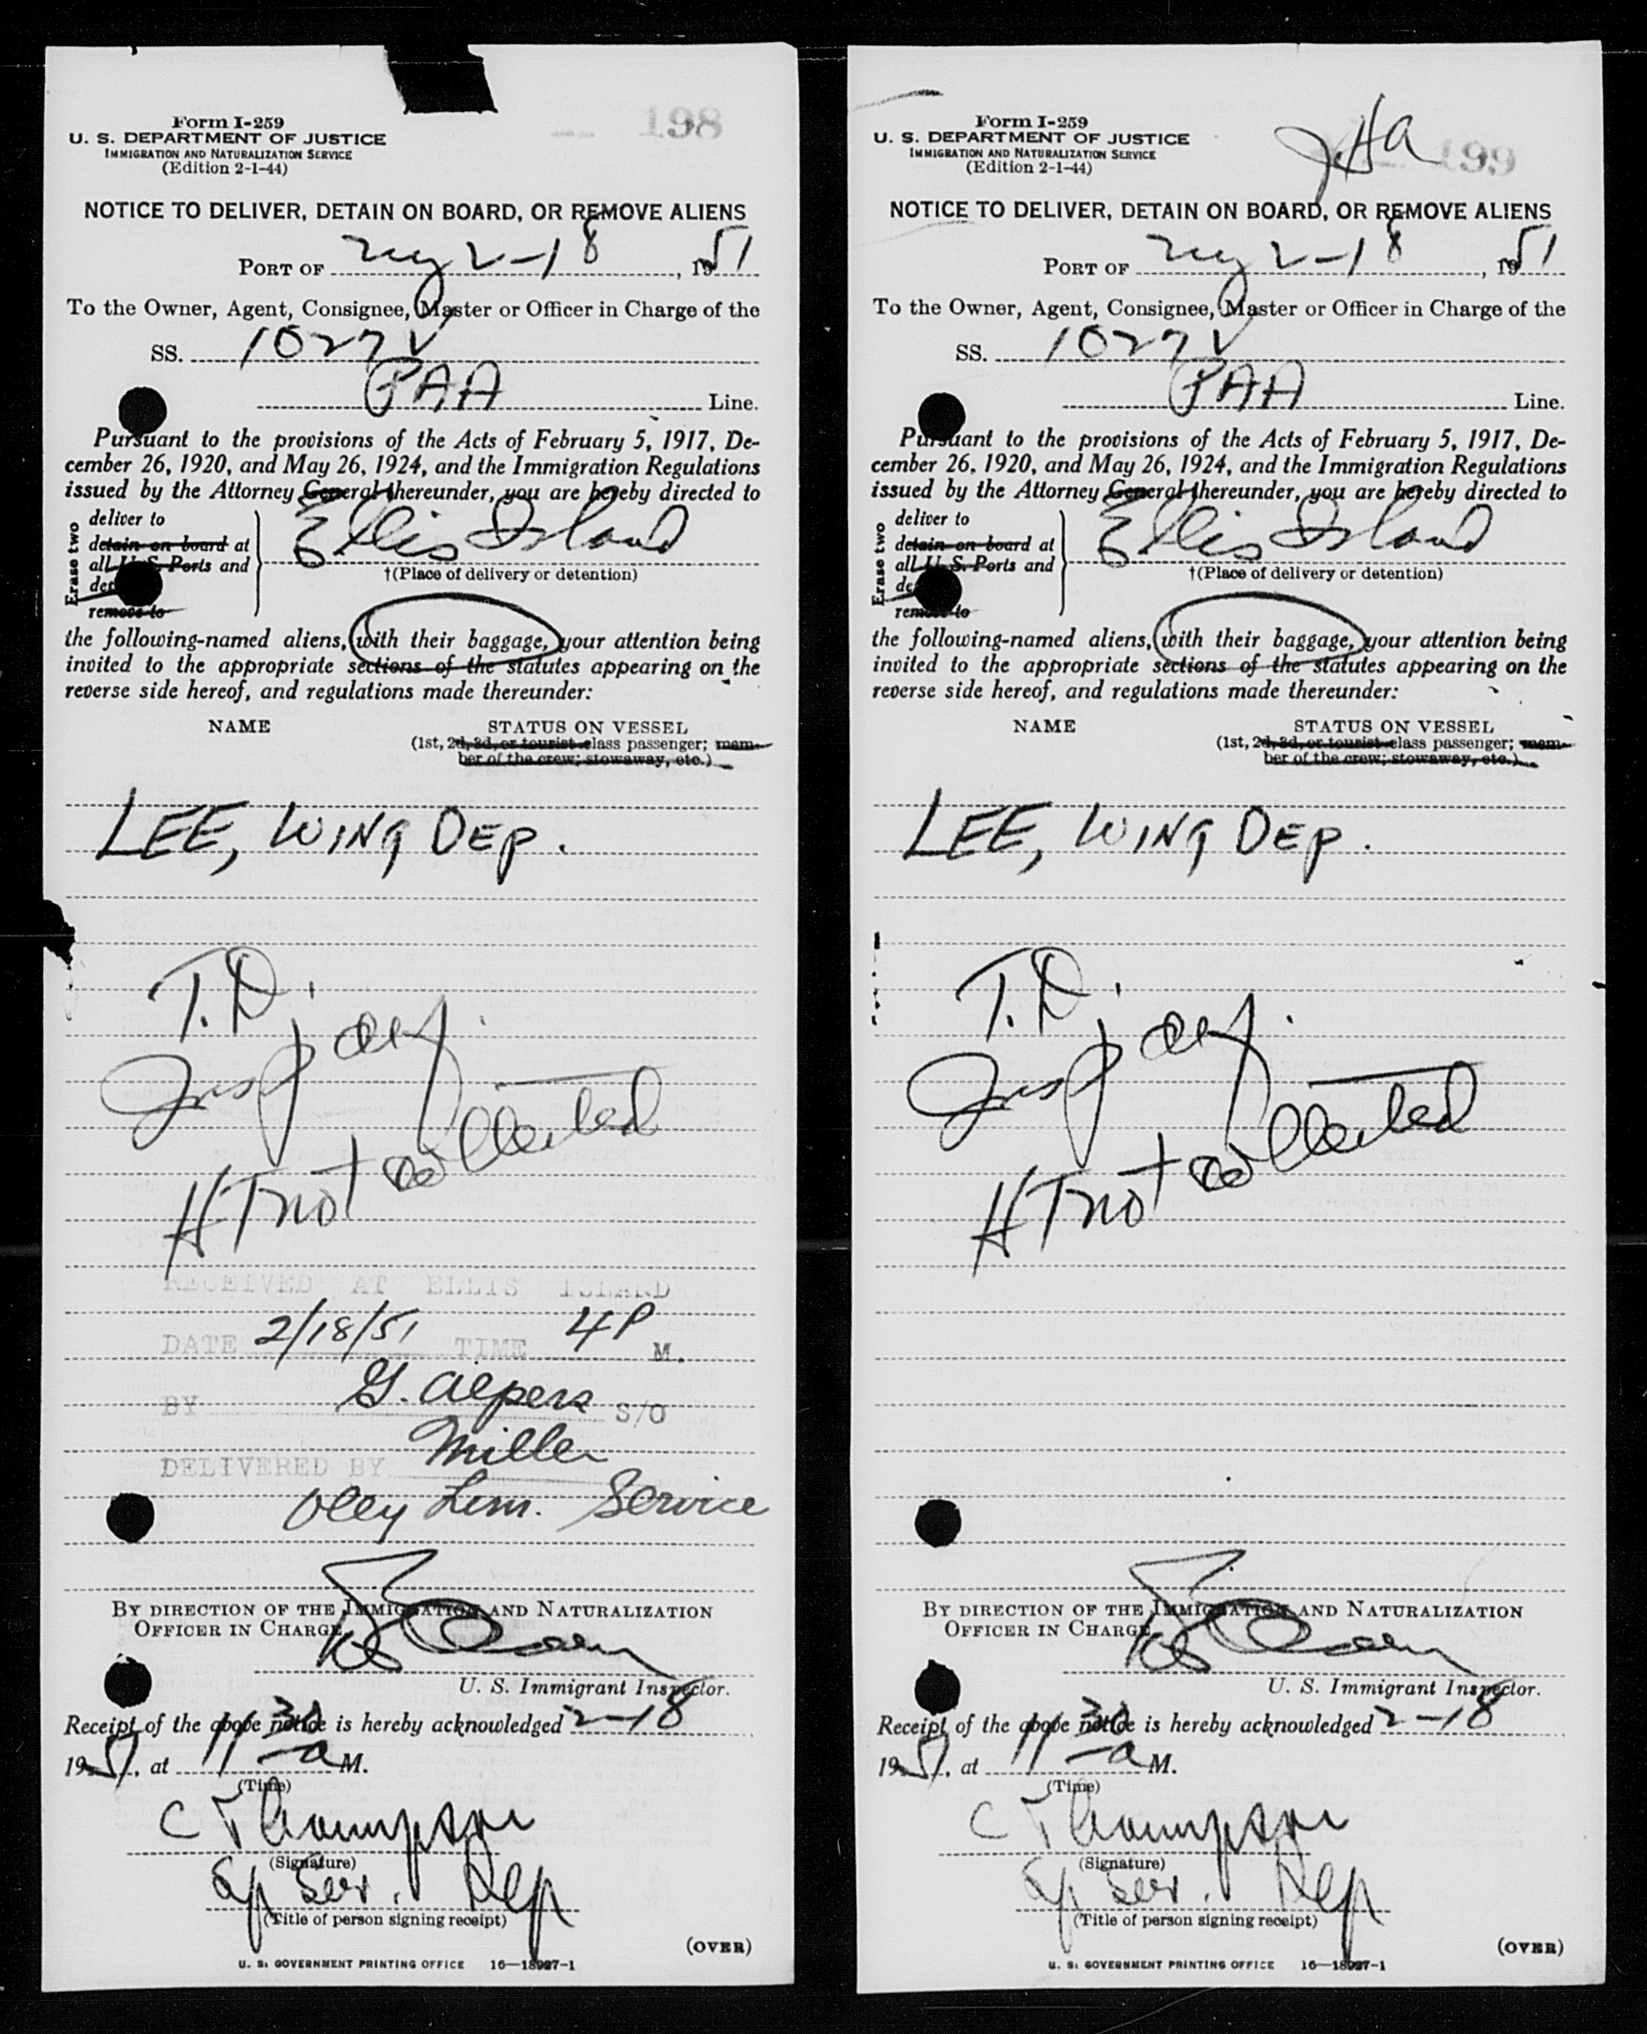 Form I-259
U. S. DEPARTMENT OF JUSTICE
IMMIGRATION AND NATURALIZATION SERVICE
(Edition 2-1-44)
198
NOTICE TO DELIVER, DETAIN ON BOARD, OR REMOVE ALIENS
PORT OF NY 2-18, 1951
To the Owner, Agent, Consignee, Master or Officer in Charge of the
SS. 1027V
PAA Line.
Pursuant to the provisions of the Acts of February 5, 1917, De-
cember 26, 1920, and May 26, 1924, and the Immigration Regulations
issued by the Attorney General thereunder, you are hereby directed to
Erase two
deliver to
detain on board at
all U. S. Ports and
remove to
Ellis Island
†(Place of delivery or detention)
the following-named aliens, with their baggage, your attention being
invited to the appropriate sections of the statutes appearing on the
reverse side hereof, and regulations made thereunder:
NAME STATUS ON VESSEL
(1st, 2d, 3d, or tourist class passenger; mem-
ber of the crew; stowaway, etc.)
LEE, WING DEP.
T.D.
Insp
HT not collected
RECEIVED AT ELLIS ISLAND
DATE 2/18/51 TIME 4P M.
BY G. Alpers S/O
DELIVERED BY Miller
Olley Lim. Service
BY DIRECTION OF THE IMMIGRATION AND NATURALIZATION
OFFICER IN CHARGE
U. S. Immigrant Inspector.
Receipt of the above notice is hereby acknowledged 2-18
1951, at 11 30 a M.
(Time)
C Thompson
(Signature)
Serv. Rep
(Title of person signing receipt)
(OVER)
U. S. GOVERNMENT PRINTING OFFICE 16—18927-1
Form I-259
U. S. DEPARTMENT OF JUSTICE
IMMIGRATION AND NATURALIZATION SERVICE
(Edition 2-1-44)
199
NOTICE TO DELIVER, DETAIN ON BOARD, OR REMOVE ALIENS
PORT OF NY 2-18, 1951
To the Owner, Agent, Consignee, Master or Officer in Charge of the
SS. 1027V
PAA Line.
Pursuant to the provisions of the Acts of February 5, 1917, De-
cember 26, 1920, and May 26, 1924, and the Immigration Regulations
issued by the Attorney General thereunder, you are hereby directed to
Erase two
deliver to
detain on board at
all U. S. Ports and
remove to
Ellis Island
†(Place of delivery or detention)
the following-named aliens, with their baggage, your attention being
invited to the appropriate sections of the statutes appearing on the
reverse side hereof, and regulations made thereunder:
NAME STATUS ON VESSEL
(1st, 2d, 3d, or tourist class passenger; mem-
ber of the crew; stowaway, etc.)
LEE, WING DEP.
T.D.
Insp
HT not collected
BY DIRECTION OF THE IMMIGRATION AND NATURALIZATION
OFFICER IN CHARGE
U. S. Immigrant Inspector.
Receipt of the above notice is hereby acknowledged 2-18
1951, at 11 30 a M.
(Time)
C Thompson
(Signature)
Serv. Rep
(Title of person signing receipt)
(OVER)
U. S. GOVERNMENT PRINTING OFFICE 16—18927-1